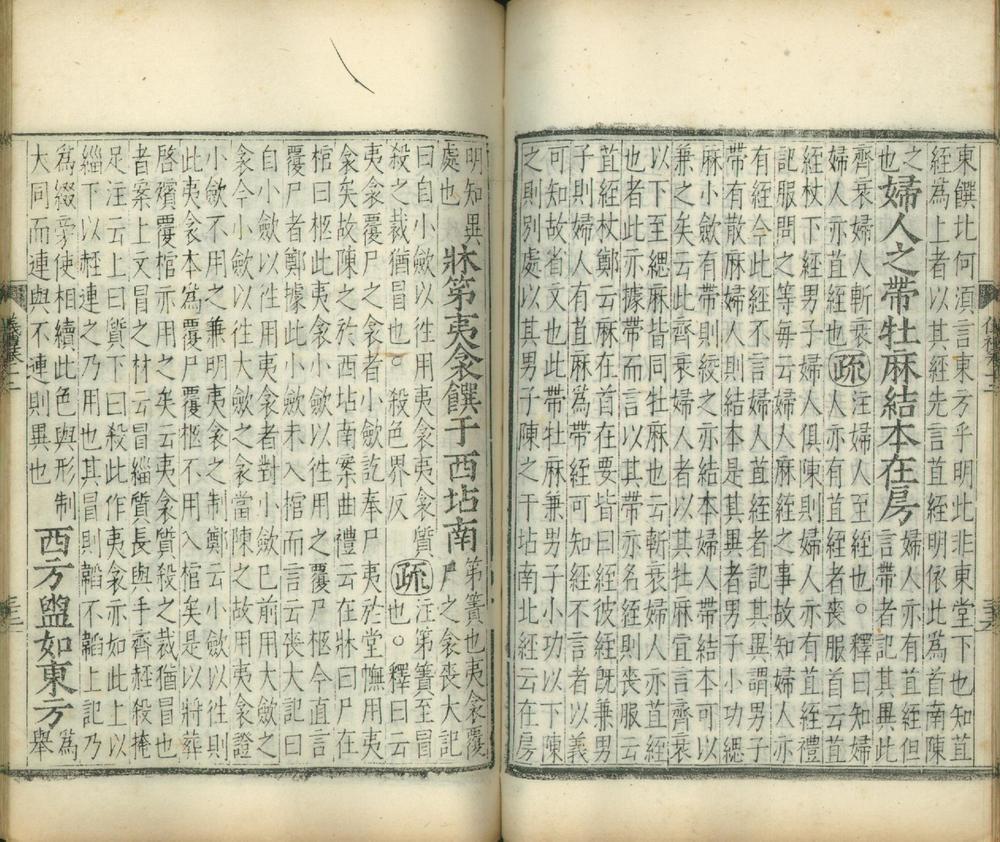 東饌比何須言東方乎明此非東堂下也知苴
絰為上者以其經先言苴絰明依此為首南陳
之
也婦人之帶牡麻結本在房婦人亦有苴絰但
言帶者記其異此
齊衰婦人斬衰
婦人亦苴絰也疏注婦人至絰也。釋曰知婦
人亦有苴絰者喪服首云苴
絰杖下經男子婦人俱陳則婦人亦有苴絰禮
記服問之等每云婦人大麻絰之事故知婦人亦
有絰今此經不言婦人苴絰者記其異謂男子
帶有散麻婦人則結本是其異者男子小功緦
麻小歛有此帶則絞之亦結本婦人帶結本可以
兼之矣云此齊衰婦人者以其牡麻宜言齊衰
以下至緦麻皆同牡麻也云斬衰婦人亦苴絰
也者此亦據帶而言以其帶亦名絰則喪服云
苴絰杖鄭云麻在首在要皆曰絰彼絰既兼男
子則婦人有苴麻為帶絰可知經不言者以義
可知故省文也此帶牡麻兼男子小功以下陳
之則別處以其男子陳之于坫南北上此經云在房
明知異
處也牀笫夷衾饌于西坫南笫簀也夷衾覆
尸之衾喪大記
曰自小斂以徃用夷衾夷衾質
殺之裁猶冒也。殺色界反疏注笫簀至冒
也。釋曰云
夷衾覆尸之衾者小歛訖奉尸夷於堂幠用夷
衾矣故陳之於西坫南案曲禮云在牀曰尸在
棺曰柩此夷衾小歛以徃用之覆尸柩今直言
覆尸者鄭據此小歛未入棺而言云喪大記曰
自小歛以徃用夷衾者對小歛已前用大歛之
衾今小歛以徃大歛之衾當陳之故用夷衾證
小歛不用之兼明夷衾之制鄭云小歛以徃則
此夷衾本為覆尸覆柩不用入棺矣是以將葬
啓殯覆棺亦用之矣云夷衾質殺之裁猶冒也
者案上文冒之材云冒緇質長與手齊䞓殺掩
足注云上曰質下曰殺此作夷衾亦如此上以
緇下以䞓連之乃用也其冒則韜下韜上記乃
為綴旁使相續此色與形制
大同而連與不連則異也西方盥如東方為
舉